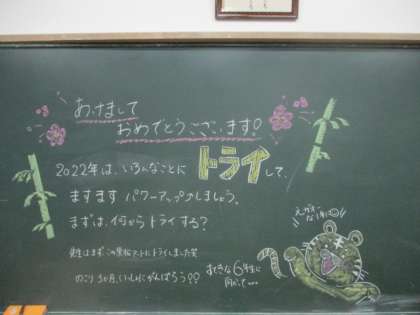 あけまして
おめでとうございます!
2022年は、いろんなことにトライして、
ますます パワーアップしましょう。
まずは、何からトライする?
先生はまずこの黒板アートにトライしました笑
のこり3か月、いっしょにがんばろう!!
すてきな6年生に
向かって…